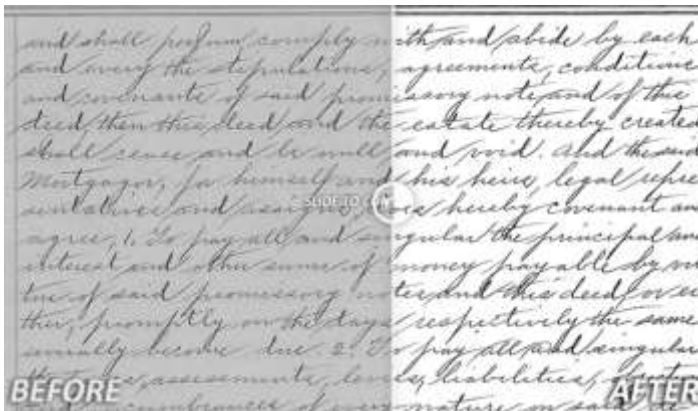 and shall perform, comply with, and abide by each
and every the stipulations, agreements, conditions
and covenants of said promissory note, and of this
deed, then this deed and the estate thereby created
shall cease and be null and void. And the said
Mortgagor, for himself and his heirs, legal repre
sentatives and assigns, does hereby covenant an
SLIDE TO
agree, 1. To pay all and singular the principal and
interest and other sums of money payable by vir
tue of said promissory note, and this deed, or ei
ther, promptly on the days respectively the same
severally become due. 2. To pay all and singular
the taxes, assessments, levies, liabilities,
encumbrances of every nature
BEFORE
AFTER